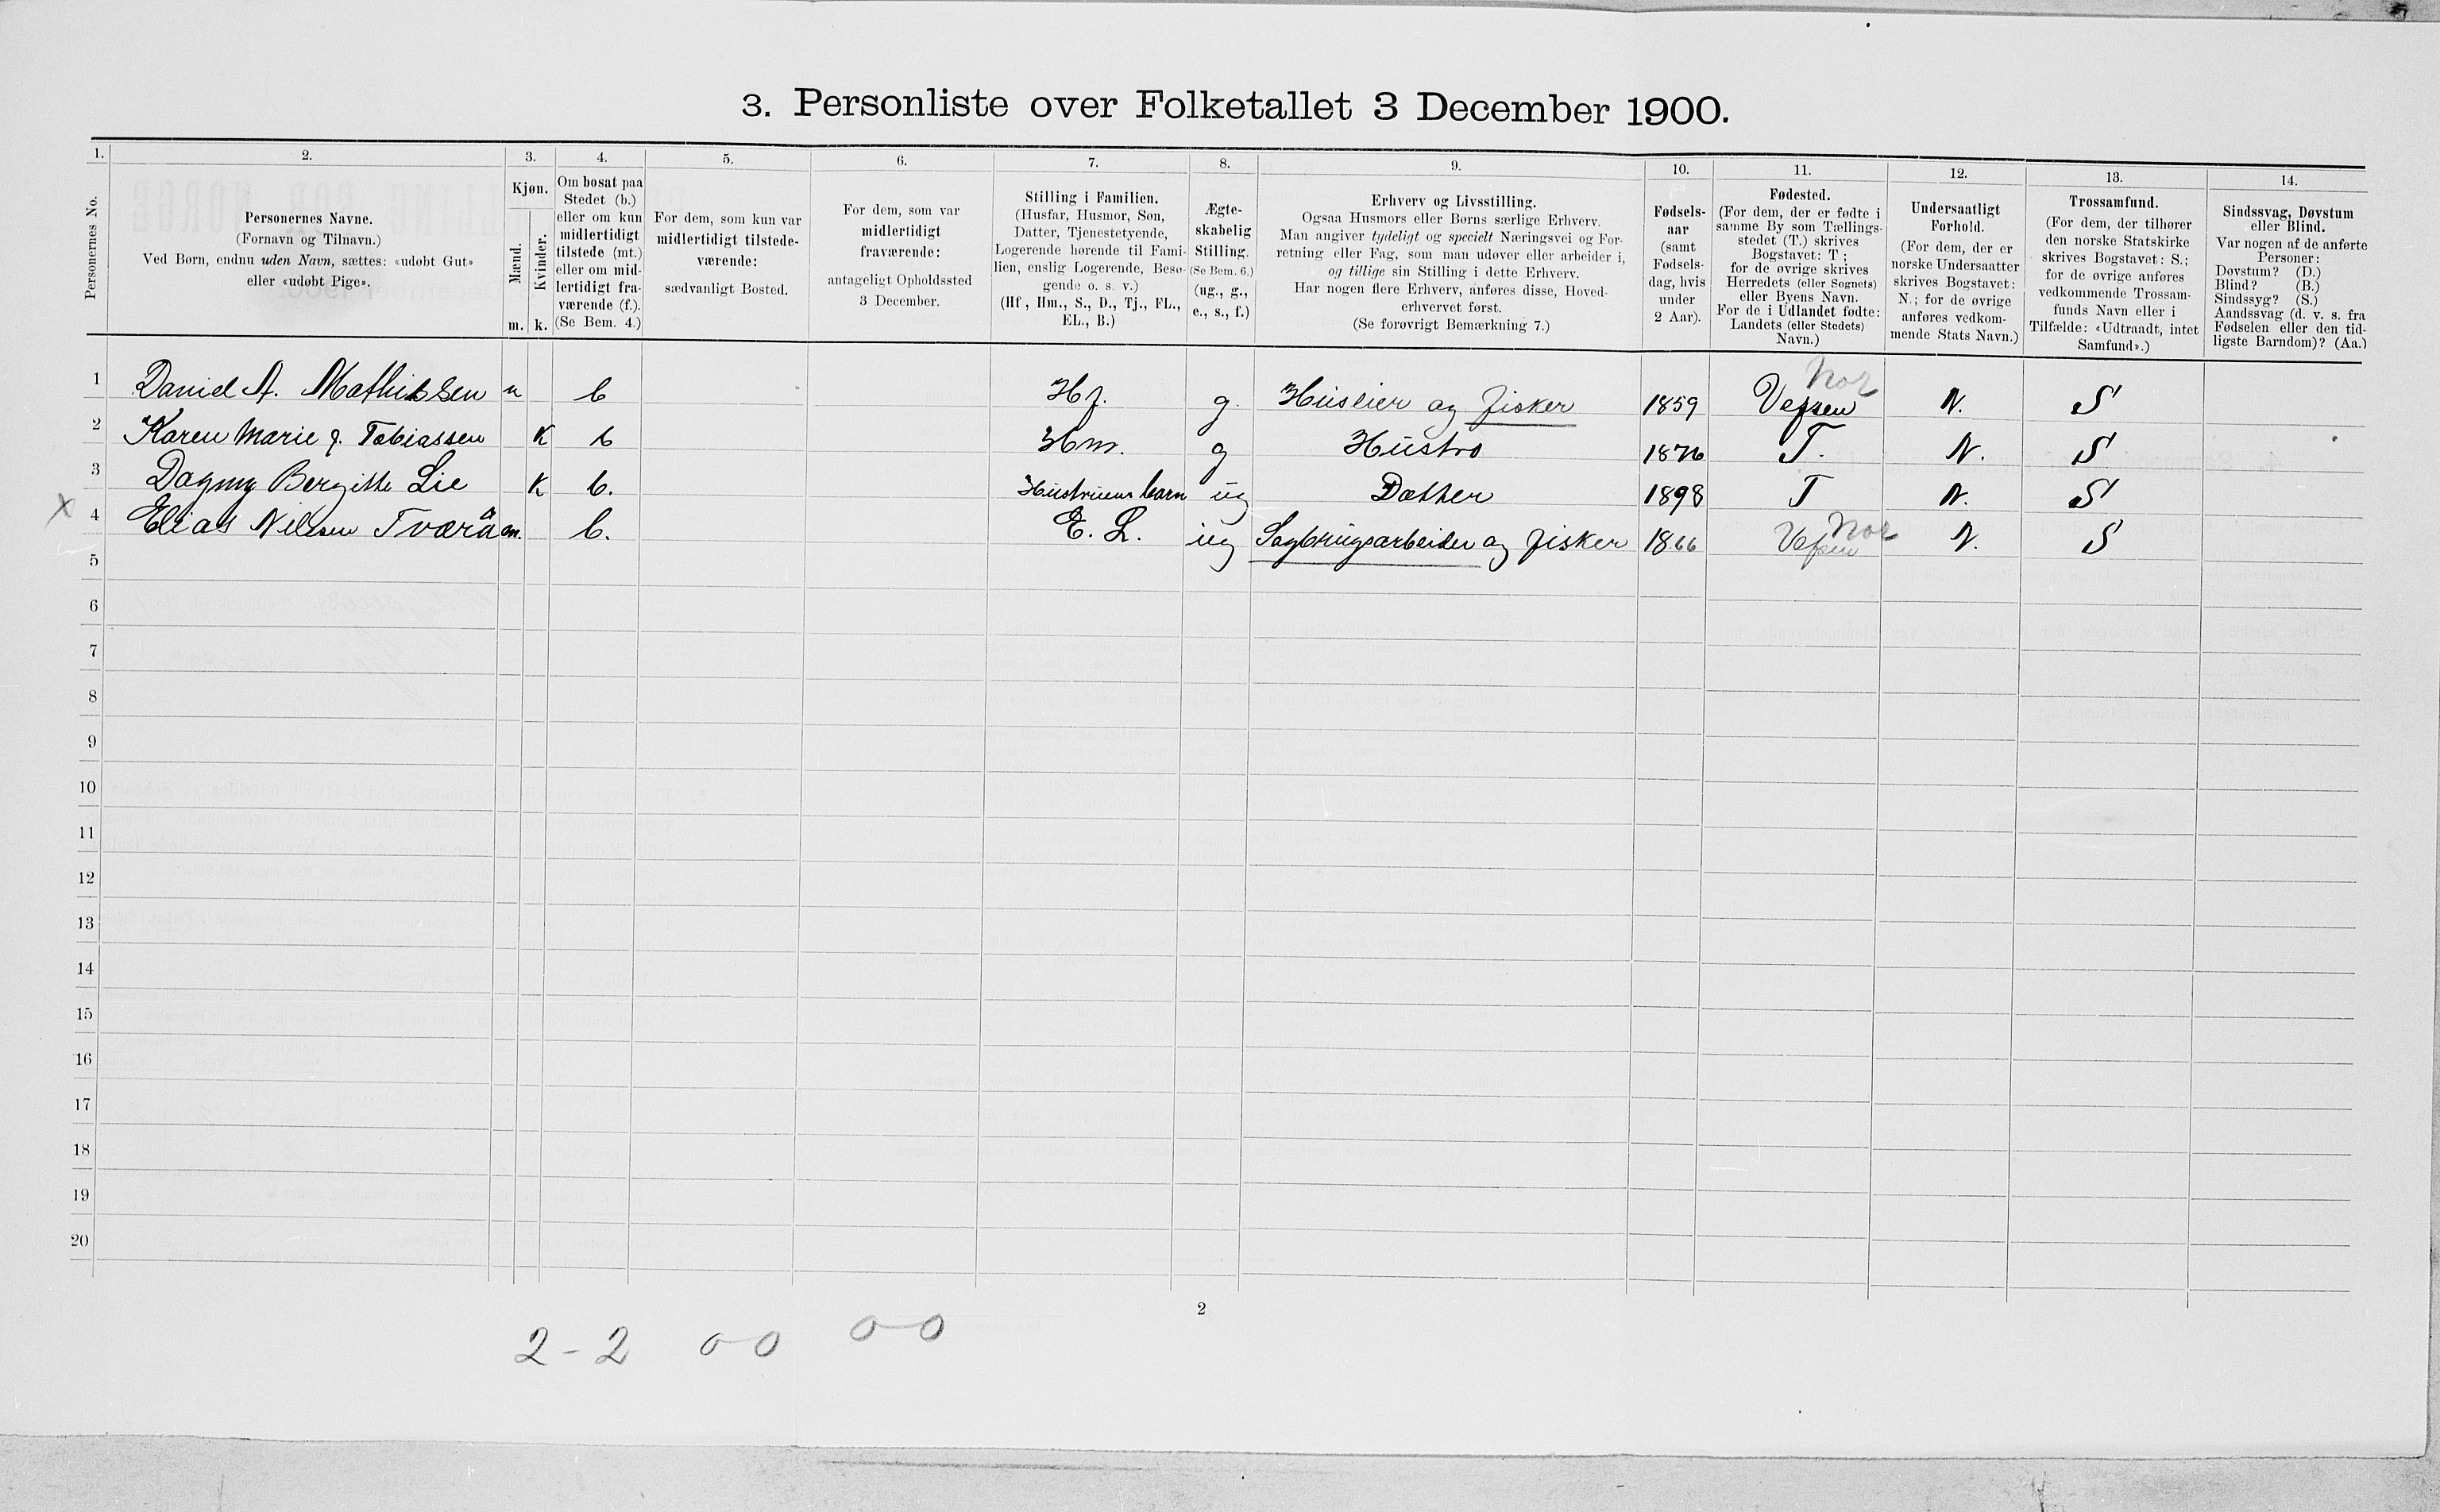 3. Personliste over Folketallet 3 December 1900.
1. 2. 3. 4. 5. 6. 7. 8. 9. 10. 11. 12. 13. 14.
Personernes No.
Personernes Navne.
(Fornavn og Tilnavn.)
Ved Børn, endnu uden Navn, sættes: «udøbt Gut»
eller «udøbt Pige».
Kjøn.
Mænd.
Kvinder.
m. k.
Om bosat paa
Stedet (b.)
eller om kun
midlertidigt
tilstede (mt.)
eller om mid-
lertidigt fra-
værende (f.).
(Se Bem. 4.)
For dem, som kun var
midlertidigt tilstede-
værende:
sædvanligt Bosted.
For dem, som var
midlertidigt
fraværende:
antageligt Opholdssted
3 December.
Stilling i Familien.
(Husfar, Husmor, Søn,
Datter, Tjenestetyende,
Logerende hørende til Fami-
lien, enslig Logerende, Besø-
gende o. s. v.)
(Hf., Hm., S., D., Tj., FL.,
EL., B.)
Ægte-
skabelig
Stilling.
(Se Bem. 6.)
(ug., g.,
e., s., f.)
Erhverv og Livsstilling.
Ogsaa Husmors eller Børns særlige Erhverv.
Man angiver tydeligt og specielt Næringsvei og For-
retning eller Fag, som man udøver eller arbeider i,
og tillige sin Stilling i dette Erhverv.
Har nogen flere Erhverv, anføres disse, Hoved-
erhvervet først.
(Se forøvrigt Bemærkning 7.)
Fødsels-
aar
(samt
Fødsels-
dag, hvis
under
2 Aar).
Fødested.
(For dem, der er fødte i
samme By som Tællings-
stedet (T.) skrives
Bogstavet: T;
for de øvrige skrives
Herredets (eller Sognets)
eller Byens Navn.
For de i Udlandet fødte:
Landets (eller Stedets)
Navn.)
Undersaatligt
Forhold.
(For dem, der er
norske Undersaatter
skrives Bogstavet:
N.; for de øvrige
anføres vedkom-
mende Stats Navn.)
Trossamfund.
(For dem, der tilhører
den norske Statskirke
skrives Bogstavet: S.;
for de øvrige anføres
vedkommende Trossam-
funds Navn eller i
Tilfælde: «Udtraadt, intet
Samfund».)
Sindssvag, Døvstum
eller Blind.
Var nogen af de anførte
Personer:
Døvstum? (D.)
Blind? (B.)
Sindssyg? (S.)
Aandssvag (d. v. s. fra
Fødselen eller den tid-
ligste Barndom)? (Aa.)
Nor
1 Daniel A. Mathissen m b Hf. g. Huseier og fisker 1859 Vefsen N. S
2 Karen Marie J. Tobiassen K b Hm. g Hustro 1876 T. N. S
3 Dagny Bergitte Lie K b. Hustruens barn ug Datter 1898 T N. S
Nor
x 4 Elias Nilssen Tverå m. b. E. L. ug Sagbrugsarbeider og fisker 1866 Vefsen N. S
5
6
7
8
9
10
11
12
13
14
15
16
17
18
19
20
2
2-2 0-0 0-0